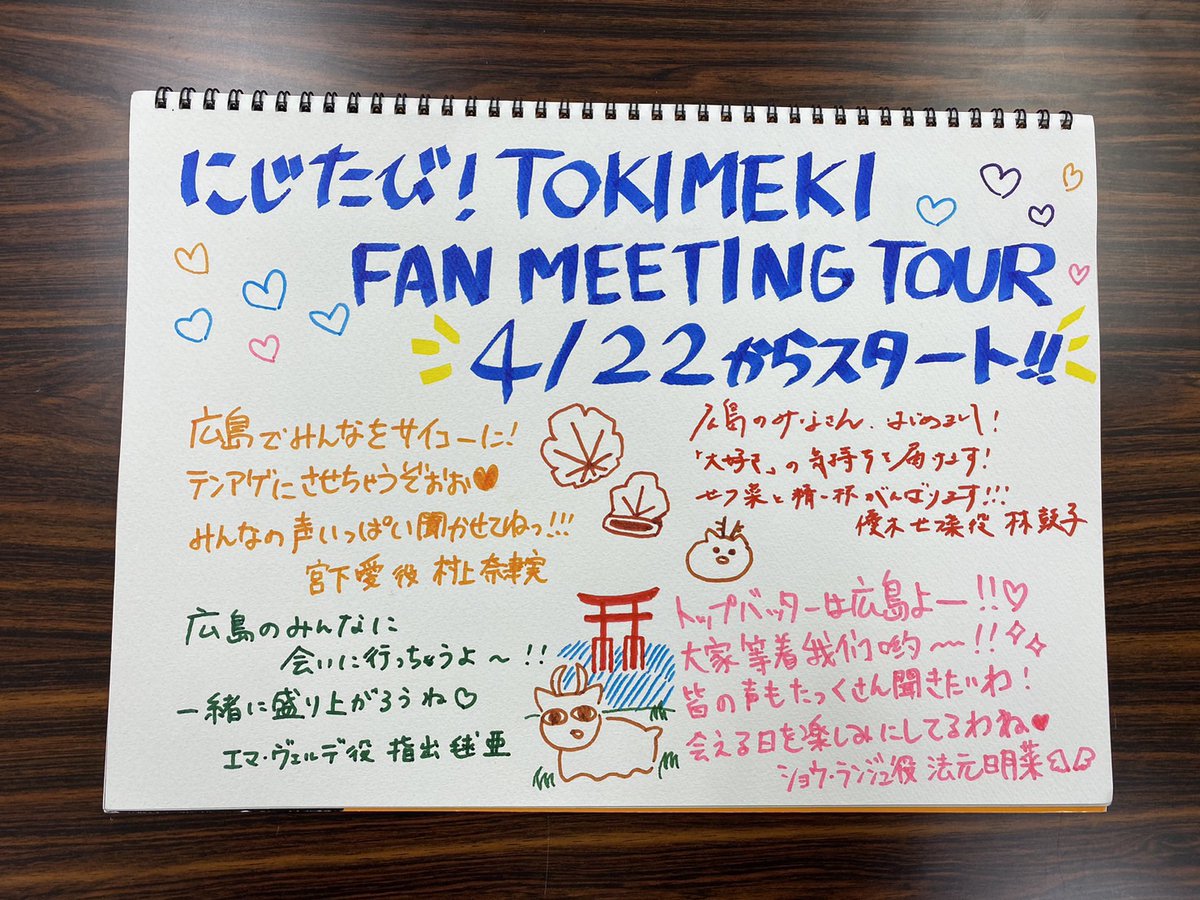 にじたび!TOKIMEKI
FAN MEETING TOUR
4/22からスタート!!
広島でみんなをサイコーに!
テンアゲにさせちゃうぞぉぉ♥
みんなの声いっぱい聞かせてねっ!!!
宮下愛役 村上奈津実
広島のみなさん、はじめまして!
「大好き」の気持ちを届けます!
せつ菜と精一杯がんばります!!!
優木せつ菜役 林鼓子
広島のみんなに
会いに行っちゃうよ〜!!
一緒に盛り上がろうね♡
エマ・ヴェルデ役 指出毬亜
トップバッターは広島よー!!♡
大家等着我们哟〜!!
皆の声もたっくさん聞きたいわ!
会える日を楽しみにしてるわね♥
ショウ・ランジュ役 法元明菜